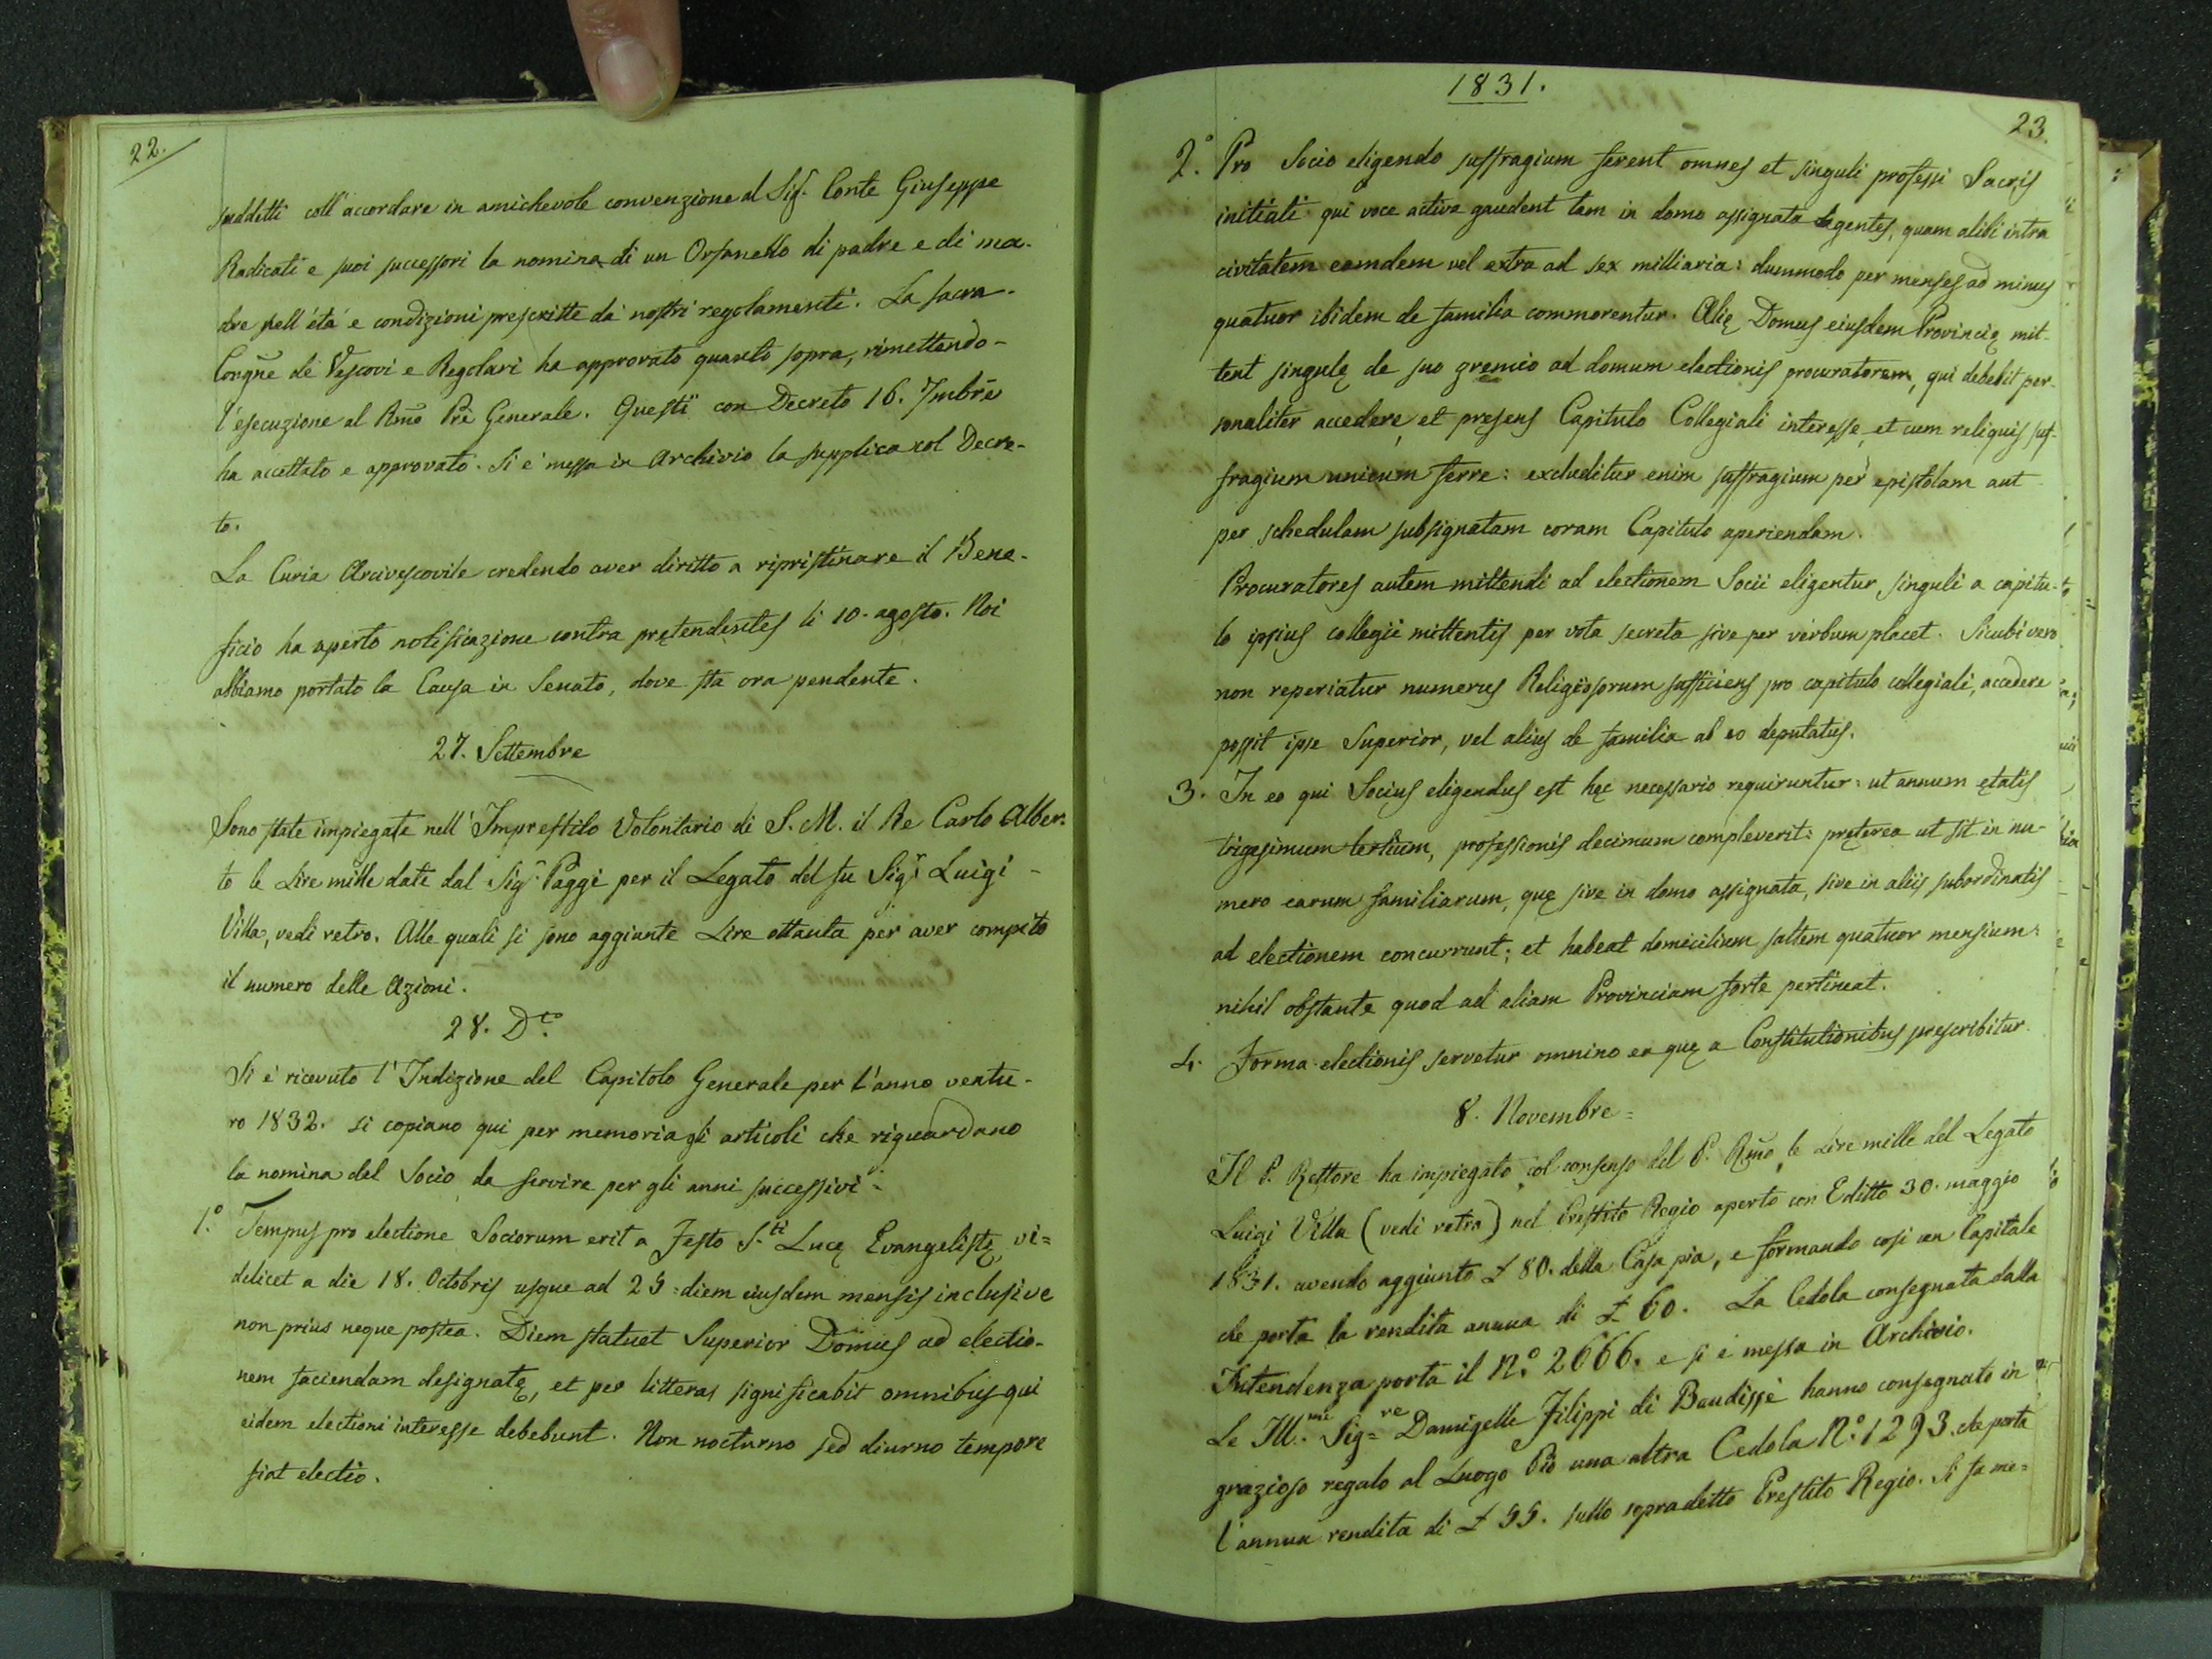 22.
suddetti coll'accordare in amichevole convenzione al Sigr. Conte Giuseppe
Radicati e suoi successori la nomina di un Orfanello di padre e di ma-
dre nell'età e condizioni prescritte da nostri regolamenti. La sacra
Congñe de Vescovi e Regolari ha approvato quanto sopra, rimettendo-
l'esecuzione al Rmo Prè Generale. Questi con Decreto 16. 7mbre
ha accettato e approvato. Si è messa in Archivio la supplica col Decre-
to.
La Curia Arcivescovile credendo aver diritto a ripristinare il Bene-
ficio ha aperto notificazione contra prętendentes li 10. agosto. Noi
abbiamo portato la Causa in Senato, dove sta ora pendente.
27. Settembre
Sono state impiegate nell'Imprestito Volontario di S. M. il Re Carlo Alber-
to le Lire mille date dal Sigr. Paggi per il Legato del fu Sigr. Luigi
Villa, vedi retro. Alle quali si sono aggiunte Lire ottanta per aver compito
il numero delle Azioni.
28. Dto.
Si è ricevuto l'Indizione del Capitolo Generale per l'anno ventu-
ro 1832. si copiano qui per memoria gli articoli che riguardano
la nomina del Socio da servire per gli anni successivi =
1.° Tempus pro electione Sociorum erit a Festo S.ti Lucę Evangelistę, vi=
delicet a die 18. Octobris usque ad 25 = diem eiusdem mensis inclusive
non prius neque postea. Diem statuet Superior Domus ad electio-
nem faciendam designatę, et per litteras significabit omnibus qui
eidem electioni interesse debebunt. Non nocturno sed diurno tempore
fiat electio.
1831.
23.
2.° Pro Socio eligendo suffragium ferent omnes et singuli professi Sacris
initiati qui voce activa gaudent tam in domo assignata degentes, quam alibi intra
civitatem eamdem vel extra ad sex milliaria: dummodo per menses ad minus
quatuor ibidem de familia commorentur. Alię Domus eiusdem Provincię mit-
tent singulę de suo gremio ad domum electionis procuratorem, qui debebit per-
sonaliter accedere, et pręsens Capitulo Collegiali interesse, et cum reliquis suf-
fragium unicum ferre: excluditur enim suffragium per epistolam aut
per schedulam subsignatam coram Capitulo aperiendam.
Procuratores autem mittendi ad electionem Socii eligentur singuli a capitu-
lo ipsius collegii mittentis per vota secreta sive per verbum placet. Sicubi vero
non reperiatur numerus Religiosorum sufficiens pro capitulo collegiali, accedere
possit ipse Superior, vel alius de familia ab eo deputatus.
3. In eo qui Socius eligendus est hęc necessario requiruntur: ut annum ętatis
trigesimum tertium, professionis decimum compleverit: pręterea ut sit in nu-
mero earum familiarum, quę sive in domo assignata, sive in aliis subordinatis
ad electionem concurrunt; et habeat domicilium saltem quatuor mensium:
nihil obstante quod ad aliam Provinciam forte pertineat.
4. Forma electionis servetur omnino ea quę a Constitutionibus pręscribitur.
8. Novembre =
Il P. Rettore ha impiegato, col consenso del P. Rmo, le Lire mille del Legato
Luigi Villa (vedi retro) nel Prestito Regio aperto con Editto 30. maggio
1831. avendo aggiunto £ 80. della Casa pia, e formando così un Capitale
che porta la rendita annua di £ 60. La Cedola consegnata dalla
Intendenza porta il N.° 2666. e si è messa in Archivio.
Le Ill.me Sig=re Damigelle Filippi di Baudissè hanno consegnato in
grazioso regalo al Luogo Pio una altra Cedola N.° 1293. che porta
l'annua rendita di £ 55. sullo sopradetto Prestito Regio. Si fa me=